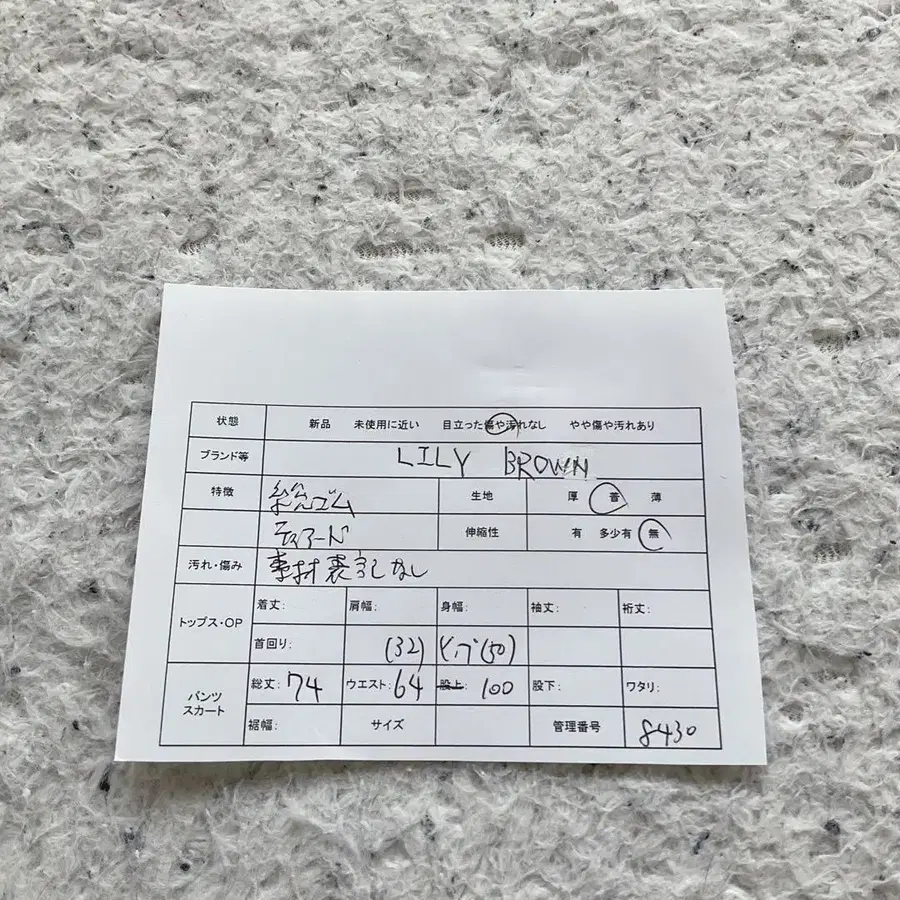 状態 新品 未使用に近い 目立った傷や汚れなし やや傷や汚れあり
ブランド等 LILY BROWN
特徴 総ゴム 生地 厚 普 薄
ティアード 伸縮性 有 多少有 無
汚れ・傷み 素材表示なし
トップス・OP 着丈: 肩幅: 身幅: 袖丈: 裄丈:
首回り: (32) ヒップ(50)
パンツ スカート 総丈: 74 ウエスト: 64 股上: 100 股下: ワタリ:
裾幅: サイズ 管理番号 8430